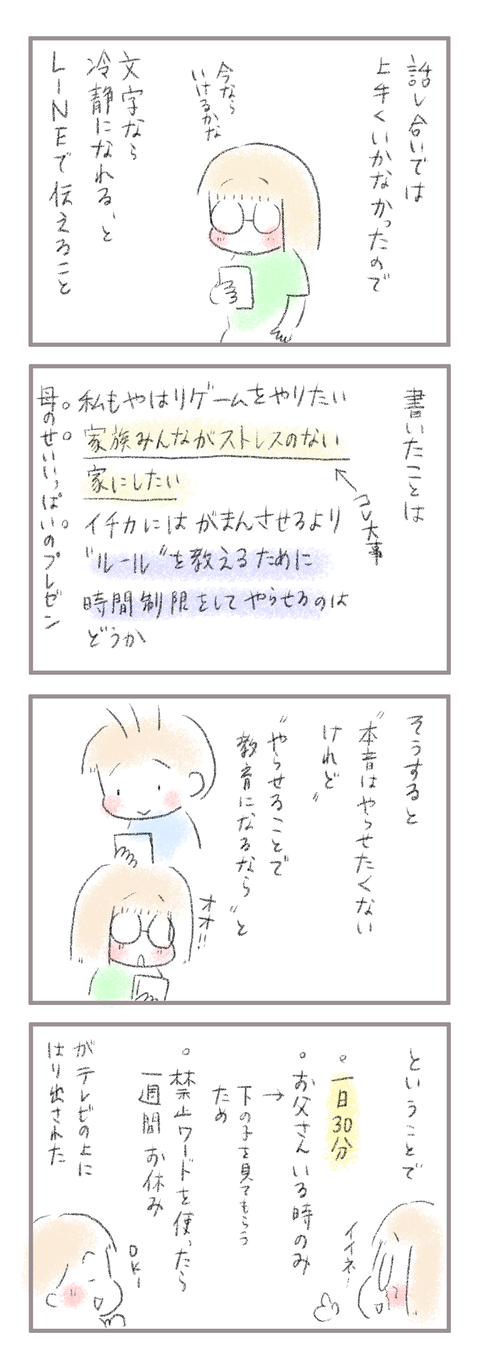 話し合いでは
上手くいかなかったので
今なら
いけるかな
文字なら
冷静になれる、と
LINEで伝えること
書いたことは
私もやはりゲームをやりたい
家族みんながストレスのない
家にしたい
コレ大事
イチカにはがまんさせるより
"ルール"を教えるために
時間制限をしてやらせるのは
どうか
母のせいいっぱいのプレゼン
そうすると
"本音はやらせたくない
けれど"
"やらせることで
教育になるなら"と
オオ!!
ということで
。一日30分
。お父さんいる時のみ
→下の子を見てもらう
ため
。禁止ワードを使ったら
一週間お休み
がテレビの上に
はり出された
イイネ!
OKー